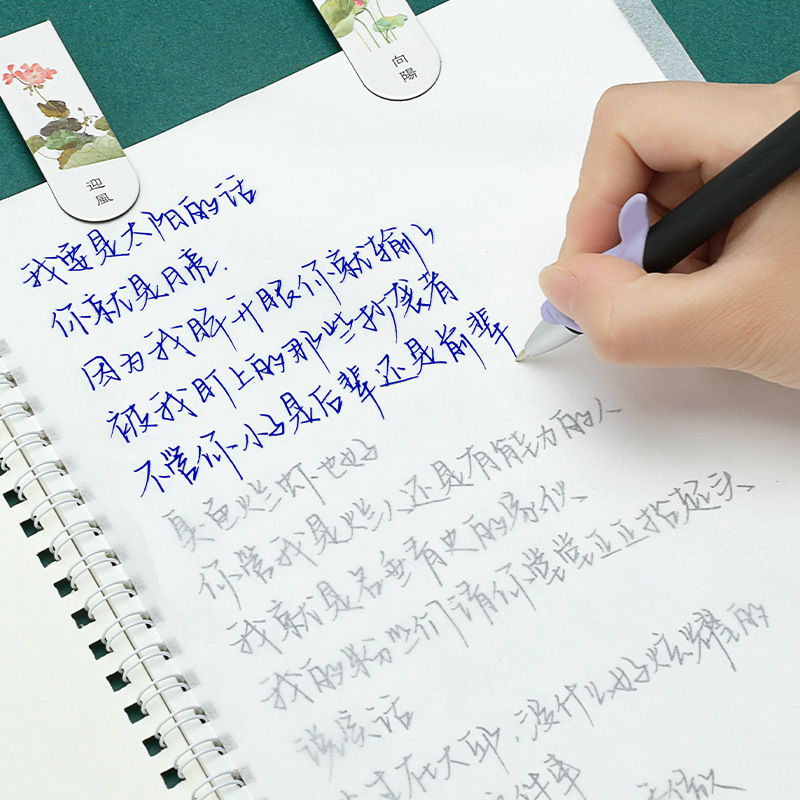 迎風
向陽
我要是太阳的话
你就是月亮.
因为我睁开眼你就输了
被我盯上的那些抄袭者
不管你小子是后辈还是前辈
臭鱼烂虾也好
你管我是烂人还是有能力的人
我就是名垂青史的
我的粉丝们请你堂堂正正抬起头、
说实话
生在大邱，没什么好炫耀的
件事